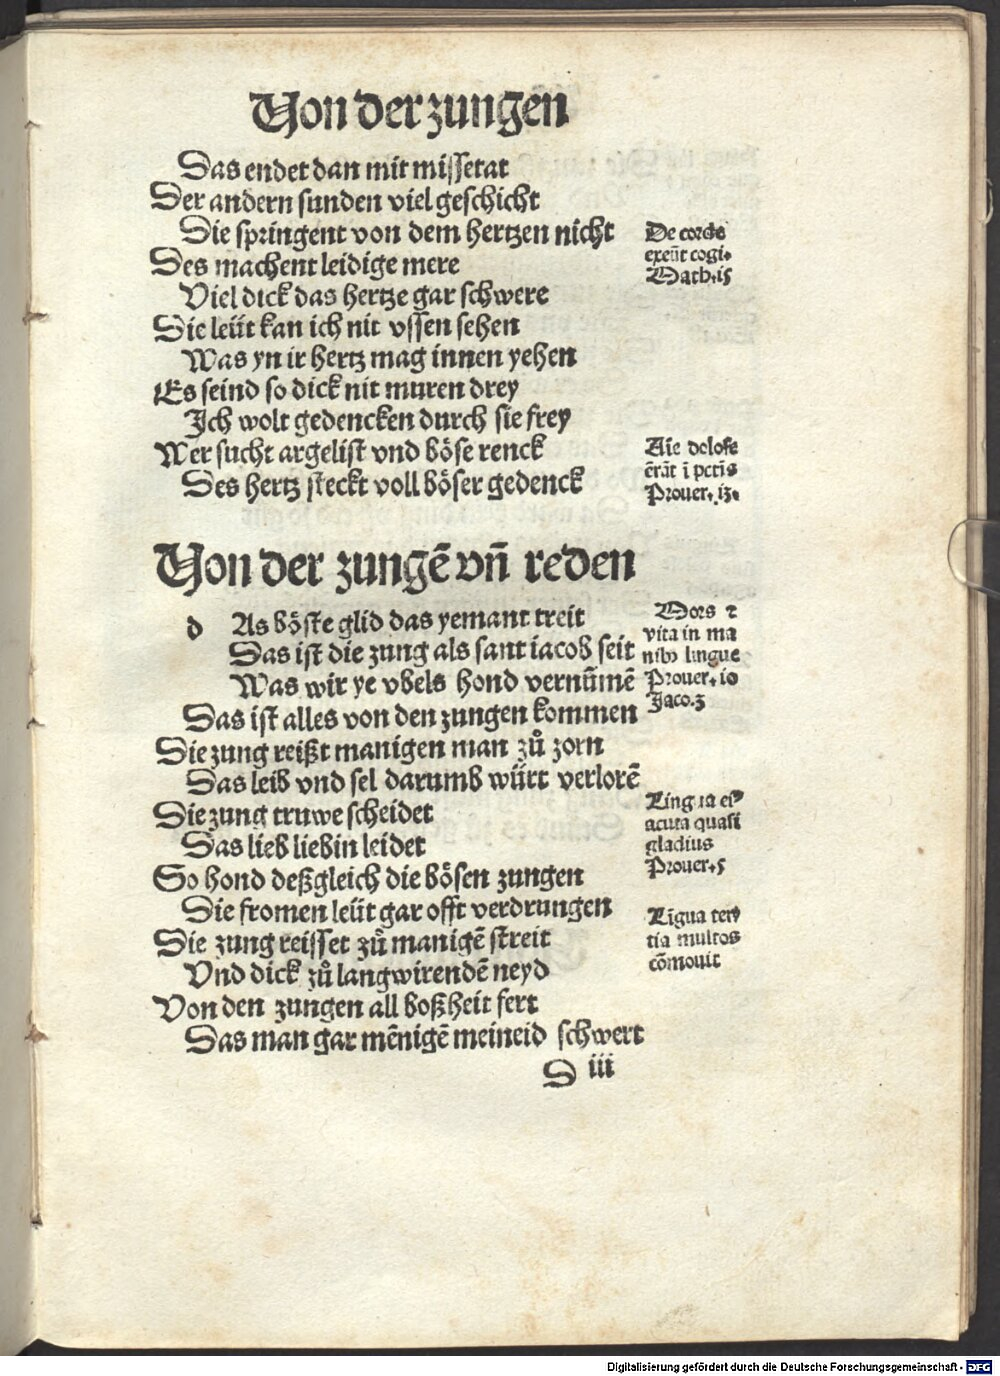 Von der zungen
Das endet dan mit missetat
Der andern sunden viel geschicht
Die springent von dem hertzen nicht
De corde
exeūt cogi.
Math.15
Des machent leidige mere
Viel dick das hertze gar schwere
Die leüt kan ich nit vssen sehen
Was yn ir hertz mag innen yehen
Es seind so dick nit muren drey
Ich wolt gedencken durch sie frey
Wer sucht argelist vnd böse renck
Des hertz steckt voll böser gedenck
Aīe dolose
ērāt ī pctīs
Prouer.13.
Von der zungē vñ reden
d As böste glid das yemant treit
Das ist die zung als sant iacob seit
Was wir ye vbels hond vernūmē
Das ist alles von den zungen kommen
Mors ⁊
vita in ma
nibꝰ lingue
Prouer.10
Jaco.3
Die zung reißt manigen man zů zorn
Das leib vnd sel darumb würt verlorē
Die zung truwe scheidet
Das lieb liebin leidet
So hond deßgleich die bösen zungen
Die fromen leüt gar offt verdrungen
Lingua eiꝰ
acuta quasi
gladius
Prouer.5
Die zung reisset zů manigē streit
Vnd dick zů langwirendē neyd
Von den zungen all boßheit fert
Das man gar mēnigē meineid schwert
Līgua ter
tia multos
cōmouit
D iii
Digitalisierung gefördert durch die Deutsche Forschungsgemeinschaft - DFG